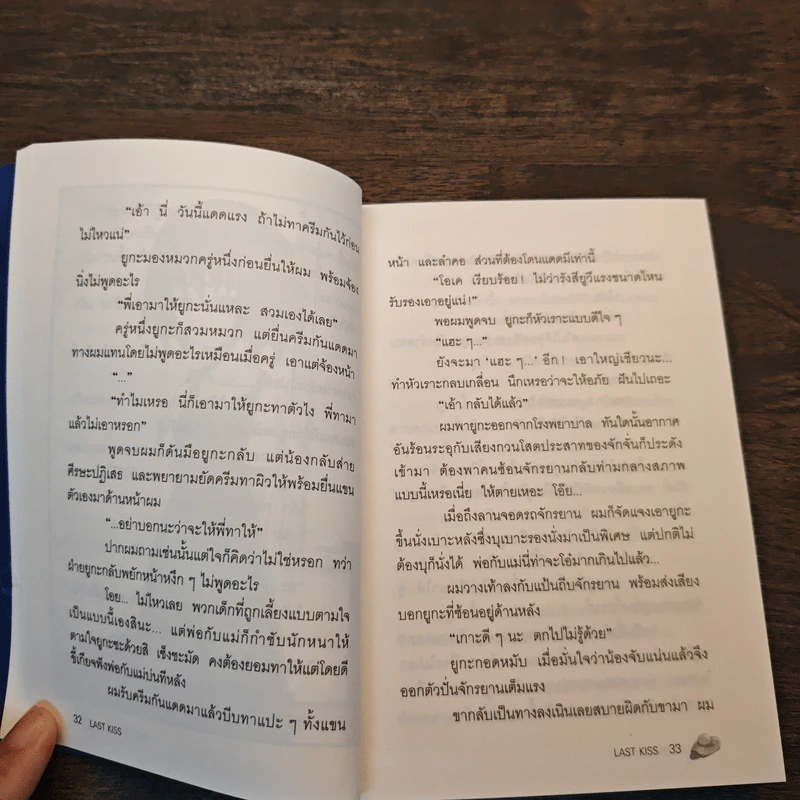 "เอ้า นี่ วันนี้แดดแรง ถ้าไม่ทาครีมกันไว้ก่อน
ไม่ไหวแน่"
ยูกะมองหมวกครู่หนึ่งก่อนยื่นให้ผม พร้อมจ้อง
นิ่งไม่พูดอะไร
"พี่เอามาให้ยูกะนั่นแหละ สวมเองได้เลย"
ครู่หนึ่งยูกะก็สวมหมวก แต่ยื่นครีมกันแดดมา
ทางผมแทนโดยไม่พูดอะไรเหมือนเมื่อครู่ เอาแต่จ้องหน้า
"..."
"ทำไมเหรอ นี่ก็เอามาให้ยูกะทาตัวไง พี่ทามา
แล้วไม่เอาหรอก"
พูดจบผมก็ดันมือยูกะกลับ แต่น้องกลับส่าย
ศีรษะปฏิเสธ และพยายามยัดครีมทาผิวให้พร้อมยื่นแขน
ตัวเองมาด้านหน้าผม
"...อย่าบอกนะว่าจะให้พี่ทาให้"
ปากผมถามเช่นนั้นแต่ใจก็คิดว่าไม่ใช่หรอก ทว่า
ฝ่ายยูกะกลับพยักหน้าหงึก ๆ ไม่พูดอะไร
โอย... ไม่ไหวเลย พวกเด็กที่ถูกเลี้ยงแบบตามใจ
เป็นแบบนี้เองสินะ... แต่พ่อกับแม่ก็กำชับนักหนาให้
ตามใจยูกะซะด้วยสิ เซ็งชะมัด คงต้องยอมทาให้แต่โดยดี
ขี้เกียจฟังพ่อกับแม่บ่นทีหลัง
ผมรับครีมกันแดดมาแล้วบีบทาแปะ ๆ ทั้งแขน
32 LAST KISS
หน้า และลำคอ ส่วนที่ต้องโดนแดดมีเท่านี้
"โอเค เรียบร้อย! ไม่ว่ารังสียูวีแรงขนาดไหน
รับรองเอาอยู่แน่!"
พอผมพูดจบ ยูกะก็หัวเราะแบบดีใจ ๆ
"แฮะ ๆ..."
ยังจะมา 'แฮะ ๆ...' อีก! เอาใหญ่เชียวนะ...
ทำหัวเราะกลบเกลื่อน นึกเหรอว่าจะให้อภัย ฝันไปเถอะ
"เอ้า กลับได้แล้ว"
ผมพายูกะออกจากโรงพยาบาล ทันใดนั้นอากาศ
อันร้อนระอุกับเสียงกวนโสตประสาทของจักจั่นก็ประดัง
เข้ามา ต้องพาคนซ้อนจักรยานกลับท่ามกลางสภาพ
แบบนี้เหรอเนี่ย ให้ตายเหอะ โอ๊ย...
เมื่อถึงลานจอดรถจักรยาน ผมก็จัดแจงเอายูกะ
ขึ้นนั่งเบาะหลังซึ่งบุเบาะรองนั่งมาเป็นพิเศษ แต่ปกติไม่
ต้องบุก็นั่งได้ พ่อกับแม่นี่ท่าจะโอ๋มากเกินไปแล้ว...
ผมวางเท้าลงกับแป้นถีบจักรยาน พร้อมส่งเสียง
บอกยูกะที่ซ้อนอยู่ด้านหลัง
"เกาะดี ๆ นะ ตกไปไม่รู้ด้วย"
ยูกะกอดหมับ เมื่อมั่นใจว่าน้องจับแน่นแล้วจึง
ออกตัวปั่นจักรยานเต็มแรง
ขากลับเป็นทางลงเนินเลยสบายผิดกับขามา ผม
LAST KISS 33